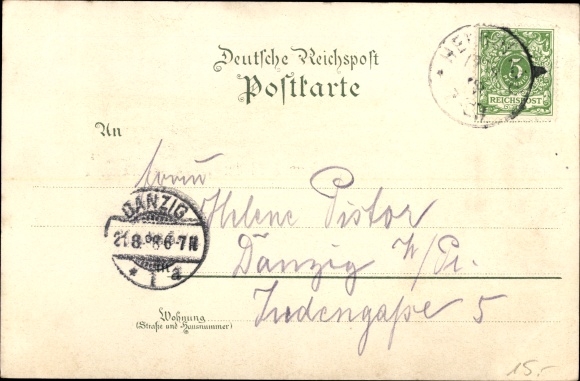 Deutsche Reichspost
Postkarte
5
REICHSPOST
An
Helene Pistor
DANZIG
21.8. 6-7N
* 1 a
Danzig W/Pr.
Judengaße 5
Wohnung
(Straße und Hausnummer)
15.-